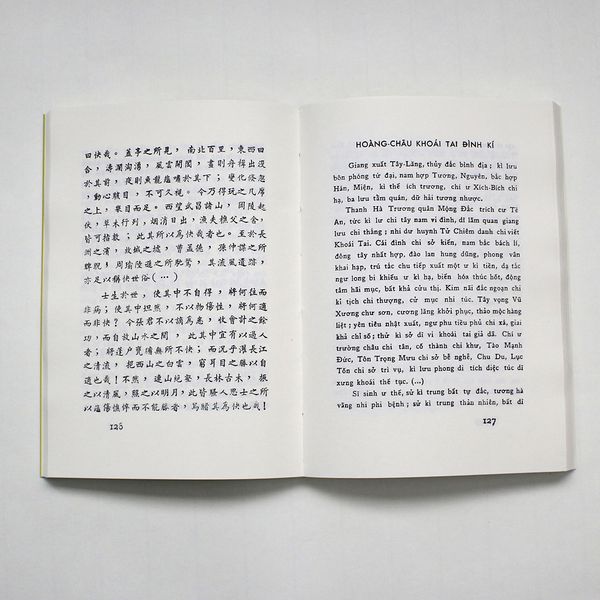 曰快哉。蓋亭之所見，南北百里，東西四
合，濤瀾洶湧，風雲開闔，晝則舟楫出沒
於其前，夜則魚龍悲嘯於其下；變化倏忽
，動心駭目，不可久視。今乃得玩之几席
之上，舉目而足。西望武昌諸山，岡陵起
伏，草木行列，烟消日出，漁夫樵父之舍，
皆可指數；此其所以為快哉者也。至於長
洲之濱，故城之墟，曹孟德、孫仲謀之所
睥睨，周瑜陸遜之所馳騖，其流風遺跡，
亦足以稱快世俗(…)
士生於世，使其中不自得，將何往而
非病；使其中坦然，不以物傷性，將何適
而非快？今張君不以謫為患，收會計之餘
功，而自放山水之間，此其中宜有以過人
者；將蓬戶甕牖無所不快；而況乎濯長江
之清流，挹西山之白雲，窮耳目之勝以自
適也哉！不然，連山絕壑，長林古木，振
之以清風，照之以明月，此皆騷人思士之所
以悲傷憔悴而不能勝者，烏睹其為快也哉！
126
HOÀNG-CHÂU KHOÁI TAI ĐÌNH KÍ
Giang xuất Tây-Lăng, thủy đắc bình địa ; kì lưu
bôn phóng tứ đại, nam hợp Tương, Nguyên, bắc hợp
Hán, Miện, kì thế ích trương, chí ư Xích-Bích chi
hạ, ba lưu tẩm quán, dữ hải tương nhược.
Thanh Hà Trương quân Mộng Đắc trích cư Tề
An, tức kì lư chi tây nam vi đình, dĩ lãm quan giang
lưu chi thắng ; nhi dư huynh Tử Chiêm danh chi viết
Khoái Tai. Cái đình chi sở kiến, nam bắc bách lí,
đông tây nhất hợp, đào lan hung dũng, phong vân
khai hạp, trú tắc chu tiếp xuất một ư kì tiền, dạ tắc
ngư long bi khiếu ư kì hạ, biến hóa thúc hốt, động
tâm hãi mục, bất khả cửu thị. Kim nãi đắc ngoạn chi
kỉ tịch chi thượng, cử mục nhi túc. Tây vọng Vũ
Xương chư sơn, cương lăng khởi phục, thảo mộc hàng
liệt ; yên tiêu nhật xuất, ngư phu tiều phủ chi xá, giai
khả chỉ sổ; thử kì sở dĩ vi khoái tai giả dã. Chí ư
trường châu chi tân, cố thành chi khư, Tào Mạnh
Đức, Tôn Trọng Mưu chi sở bễ nghễ, Chu Du, Lục
Tốn chi sở trì vụ, kì lưu phong di tích diệc túc dĩ
xưng khoái thế tục. (...)
Sĩ sinh ư thế, sử kì trung bất tự đắc, tương hà
vãng nhi phi bệnh ; sử kì trung thản nhiên, bất dĩ
127